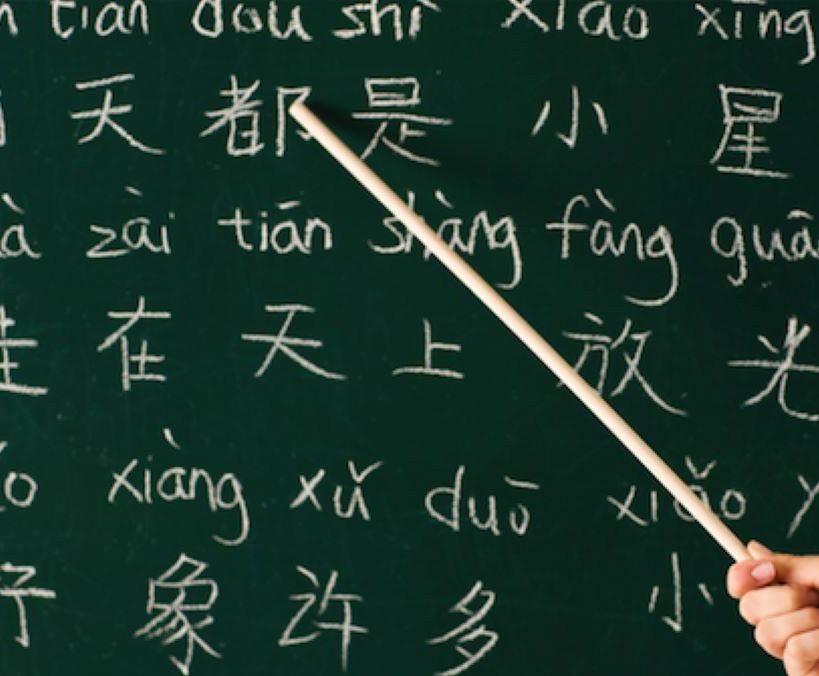 tiān dōu shì xiǎo xīng
天 都 是 小 星
zài tiān shàng fàng
在 天 上 放 光
xiàng xǔ duō xiǎo
象 许 多 小